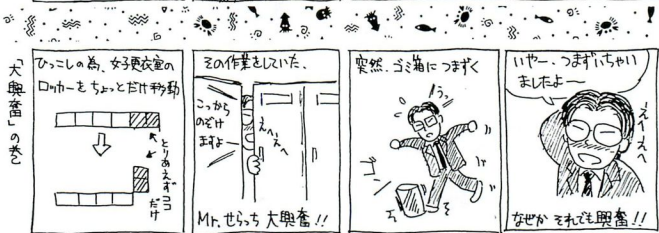 「大興奮」の巻
ひっこしの為、女子更衣室の
ロッカーをちょっとだけ移動
とりあえずココ
だけ
その作業をしていた、
こっから
のぞけ
ますよー
えへ
えへ
Mr.せらっち 大興奮!!
突然、ゴミ箱につまずく
うっ
ゴン
いやー、つまずいちゃい
ましたよー
えへえへ
なぜか それでも興奮!!